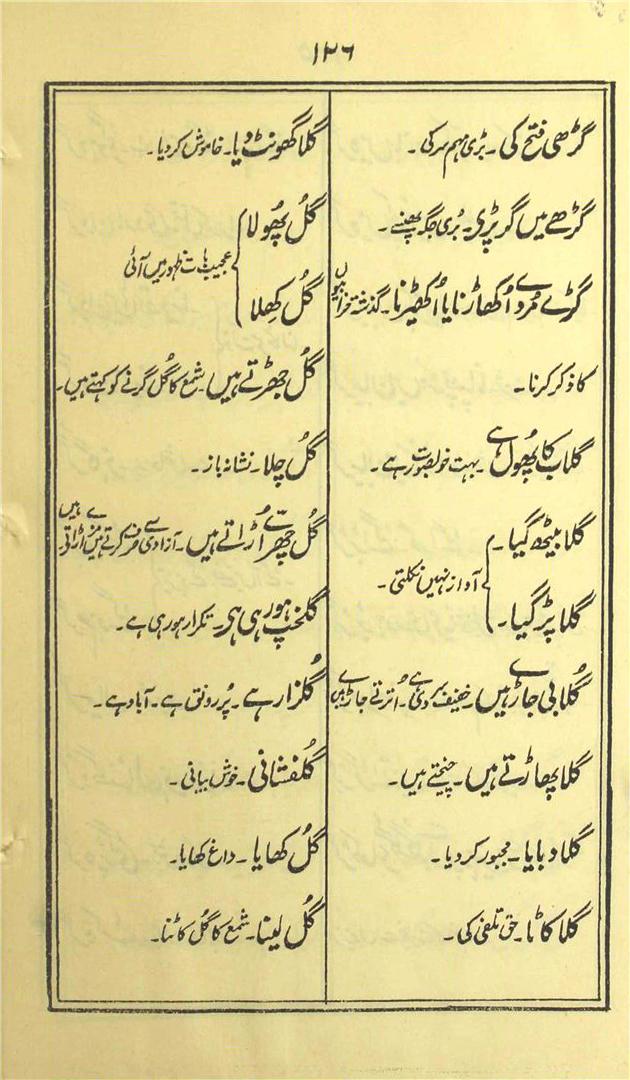 ۱۲۶
گڑھی فتح کی۔ بڑی مہم سر کی۔
گڑھے میں گر پڑی۔ بُری جگہ پھنسے۔
گڑے مُردے اُکھاڑنا یا اُکھیڑنا۔ گذشتہ خرابیوں
کا ذکر کرنا۔
گلاب کا پھول ہے۔ بہت خوبصورت ہے۔
گلا بیٹھ گیا۔
گلا پڑ گیا۔
آواز نہیں نکلتی۔
گلابی جاڑے ہیں۔ خفیف سردی ہے۔ اُترتے جاڑے ہیں
گلا پھاڑتے ہیں۔ چیختے ہیں۔
گلا دبایا۔ مجبور کر دیا۔
گلا کاٹا۔ حق تلفی کی۔
گلا گھونٹ دیا۔ خاموش کر دیا۔
گُل پھُولا
گُل کھِلا
عجیب بات ظہور میں آئی
گُل جھڑتے ہیں۔ شمع کا گُل گرنے کو کہتے ہیں۔
گُل چلا۔ نشانہ باز۔
گُل چھرّے اُڑاتے ہیں۔ آزادی سے صرف کرتے ہیں مزے اڑاتے ہیں
گلخپ ہو رہی ہی۔ تکرار ہو رہی ہے۔
گُلزار ہے۔ پُر رونق ہے۔ آباد ہے۔
گُلفشانی۔ خوش بیانی۔
گُل کھایا۔ داغ کھایا۔
گُل لینا۔ شمع کا گُل کاٹنا۔